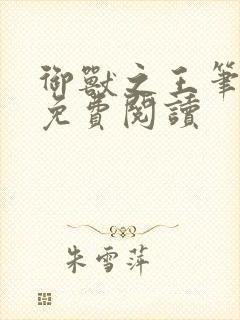 御獸之王筆
免費閱讀
朱雪萍